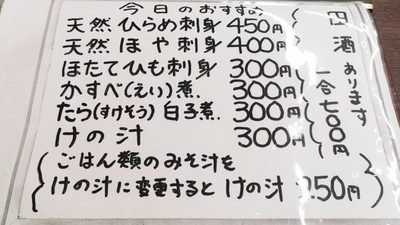 今日のおすすめ
天然ひらめ刺身 450円
天然ほや刺身 400円
ほたてひも刺身 300円
かすべ(えい)煮. 300円
たら(すけそう)白子煮. 300円
けの汁 300円
ごはん類のみそ汁を
けの汁に変更すると けの汁 250円
酒あります
一合七〇〇円